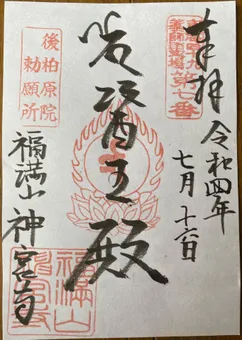 奉拝
第七番
令和四年
七月十六日
醫王殿
後柏原院
勅願所
福満山 神宮寺
福満山
神宮寺